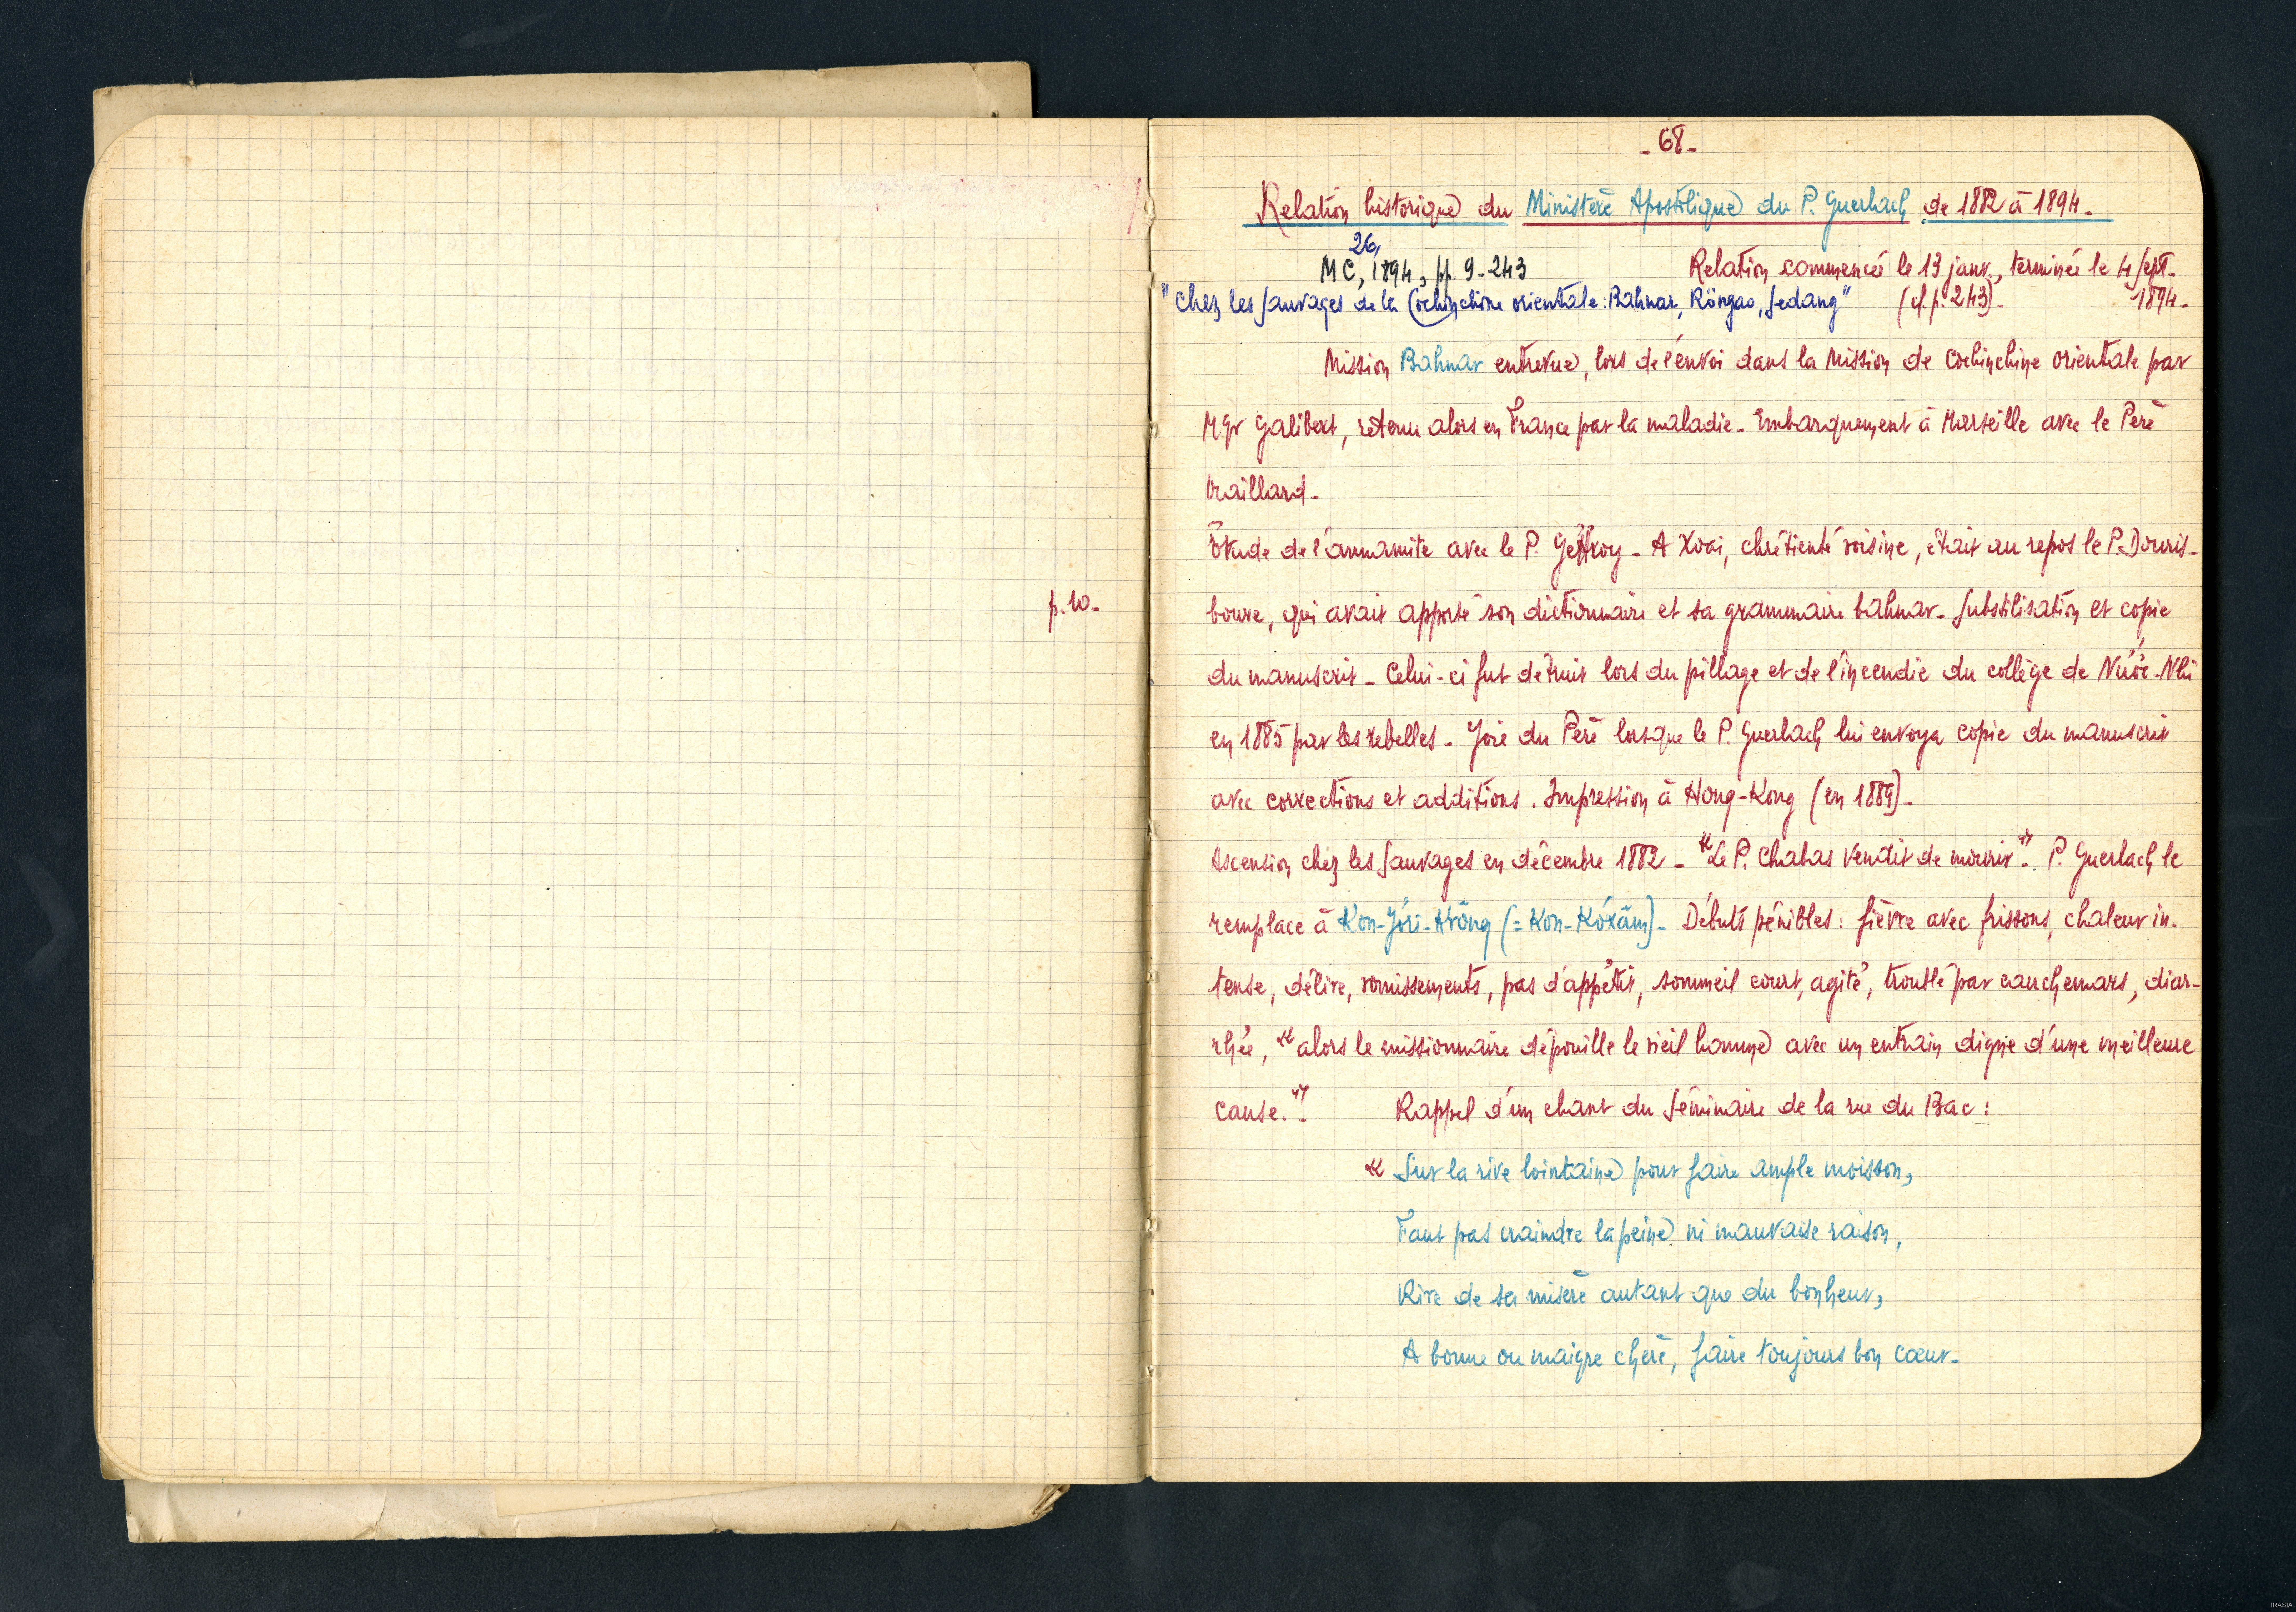 - 68 -
Relation historique du Ministère Apostolique du P. Guerlach de 1882 à 1894 -
MC, 26, 1894, pp. 9-243
Relation commencée le 13 janv., terminée le 4 sept. 1894 -
"Chez les Sauvages de la Cochinchine orientale : Bahnar, Röngao, Sedang"
(cf. p. 243) -
Mission Bahnar entrevue, lors de l'envoi dans la Mission de Cochinchine orientale par
Mgr Galibert, retenu alors en France par la maladie - Embarquement à Marseille avec le Père
Vraillard -
p. 10 -
Etude de l'annamite avec le P. Geffroy - A Xoài, chrétienté voisine, était au repos le P. Douris-
boure, qui avait apporté son dictionnaire et sa grammaire bahnar - Substilisation et copie
du manuscrit - Celui-ci fut détruit lors du pillage et de l'incendie du collège de Nước-Nhi
en 1885 par les rebelles - Joie du Père lorsque le P. Guerlach lui envoya copie du manuscrit
avec corrections et additions. Impression à Hong-Kong (en 1889) -
Ascension chez les Sauvages en décembre 1882 - « Le P. Chabas venait de mourir ». P. Guerlach le
remplace à Kon-Jŏri-Krŏng (= Kon-Kŏxâm) - Débuts pénibles : fièvre avec frissons, chaleur in-
tense, délire, vomissements, pas d'appétit, sommeil court, agité, troublé par cauchemars, diar-
rhée, « alors le missionnaire dépouille le vieil homme avec un entrain digne d'une meilleure
cause. » Rappel d'un chant du Séminaire de la rue du Bac :
« Sur la rive lointaine pour faire ample moisson,
Faut pas craindre la peine ni mauvaise raison,
Rire de sa misère autant que du bonheur,
A bonne ou maigre chère, faire toujours bon cœur -
IRASIA